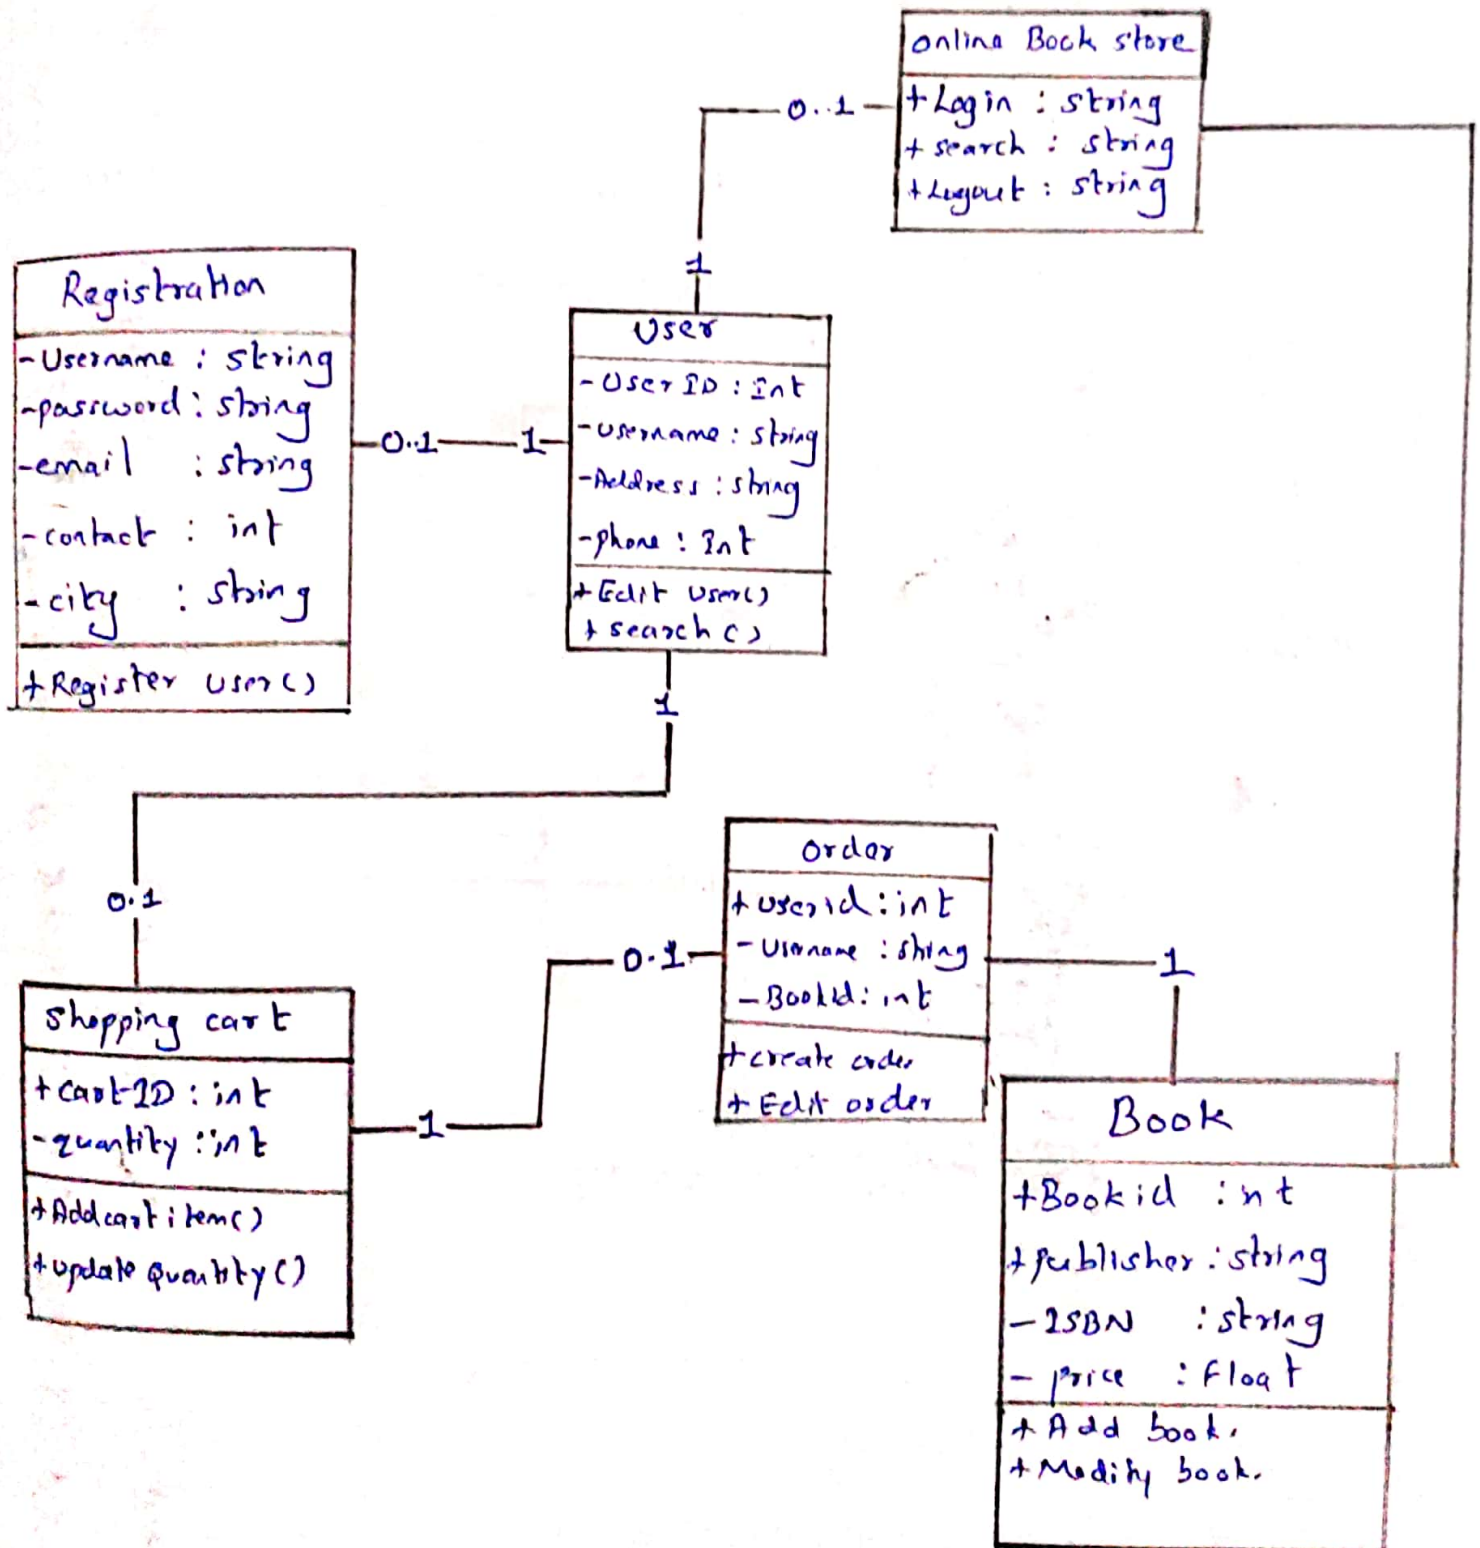 online Book store
+ Login : string
+ search : string
+ Logout : string
0..1
1
Registration
- Username : string
- password : string
- email : string
- contact : int
- city : string
+ Register user()
0..1
1
User
- User ID : Int
- username : string
- Address : string
- phone : Int
+ Edit user()
+ search()
1
0.1
shopping cart
+ cart ID : int
- quantity : int
+ Add cart item()
+ update quantity()
1
0.1
order
+ userid : int
- Username : string
- Bookid : int
+ create order
+ Edit order
1
Book
+ Book id : int
+ publisher : string
- ISBN : string
- price : Float
+ Add book.
+ Modify book.